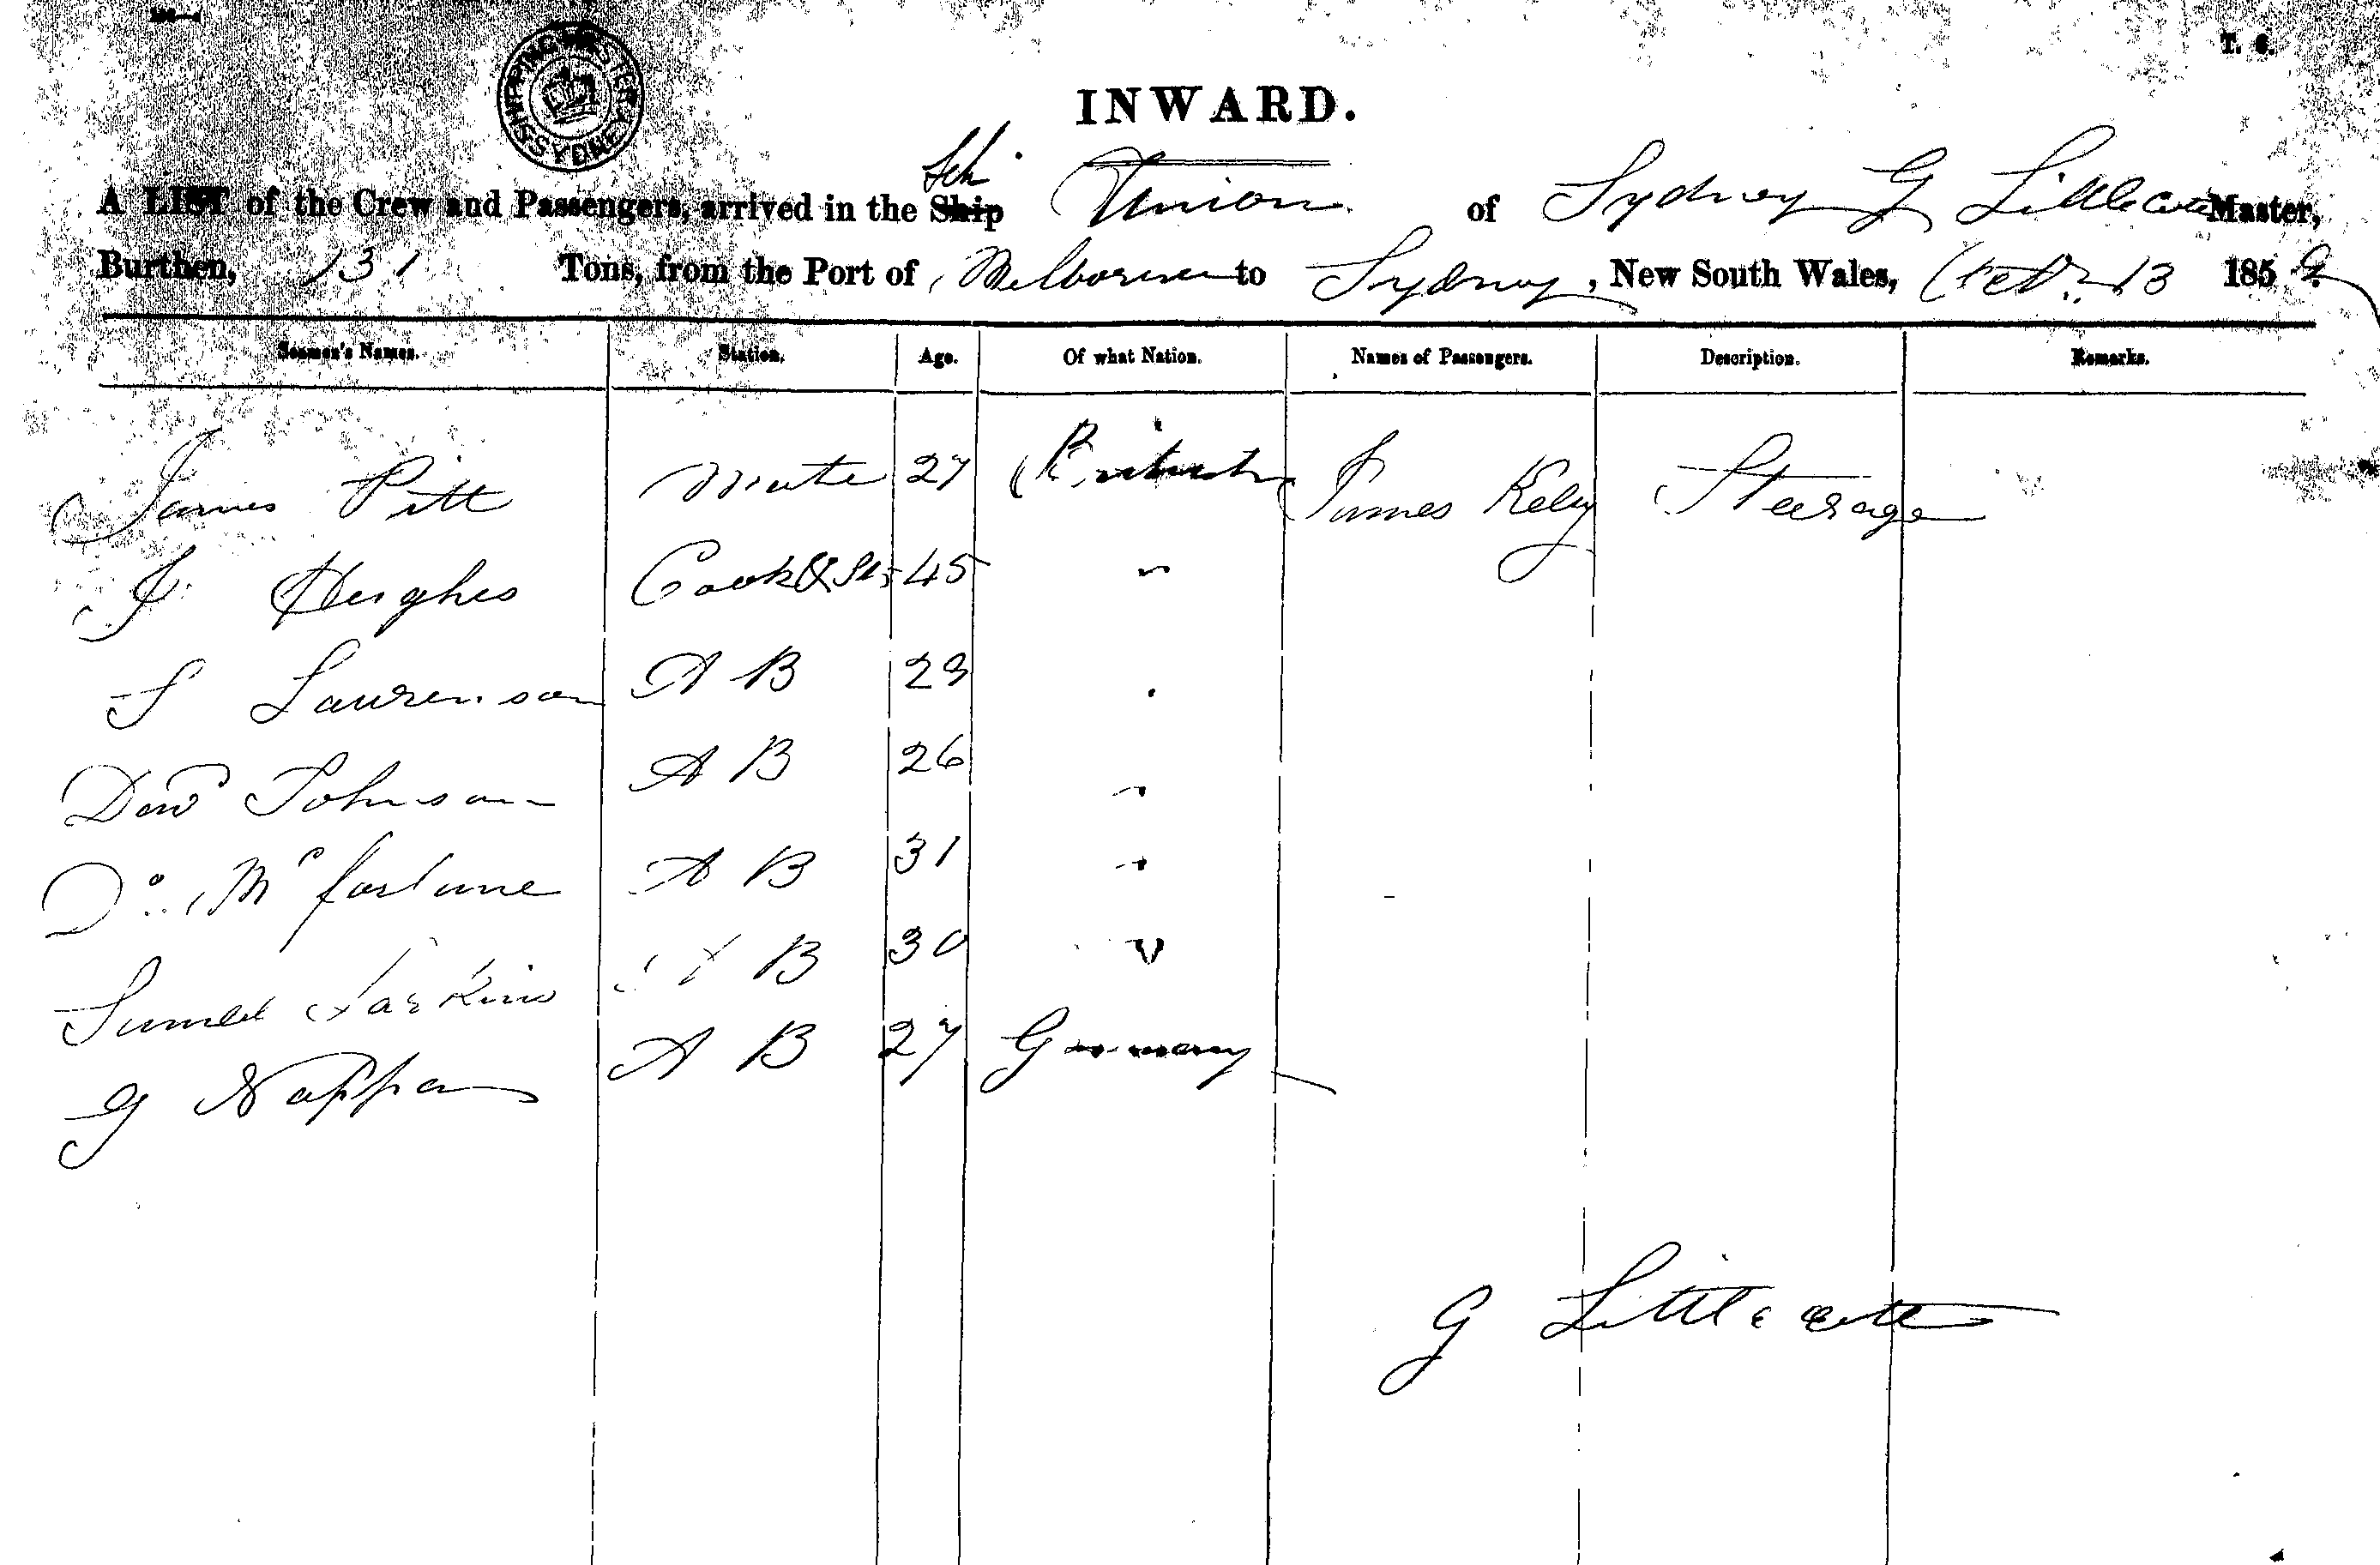 SHIPPING MASTER SYDNEY
T. 6.
INWARD.
Sch
A LIST of the Crew and Passengers, arrived in the Ship Union of Sydney G Littlecott Master,
Burthen, 131 Tons, from the Port of Melbourne to Sydney, New South Wales, 13 1859
Seamen's Names. Station. Age. Of what Nation. Names of Passengers. Description. Remarks.
James Pitt Mate 27 British James Kely Steerage
J Hughes Cook & 45 "
S Laurenson A B 23
Johnson A B 26 "
Do McFortune A B 31 "
Larkins A B 30 "
G Nappan A B 27 Germany
G Littlecott